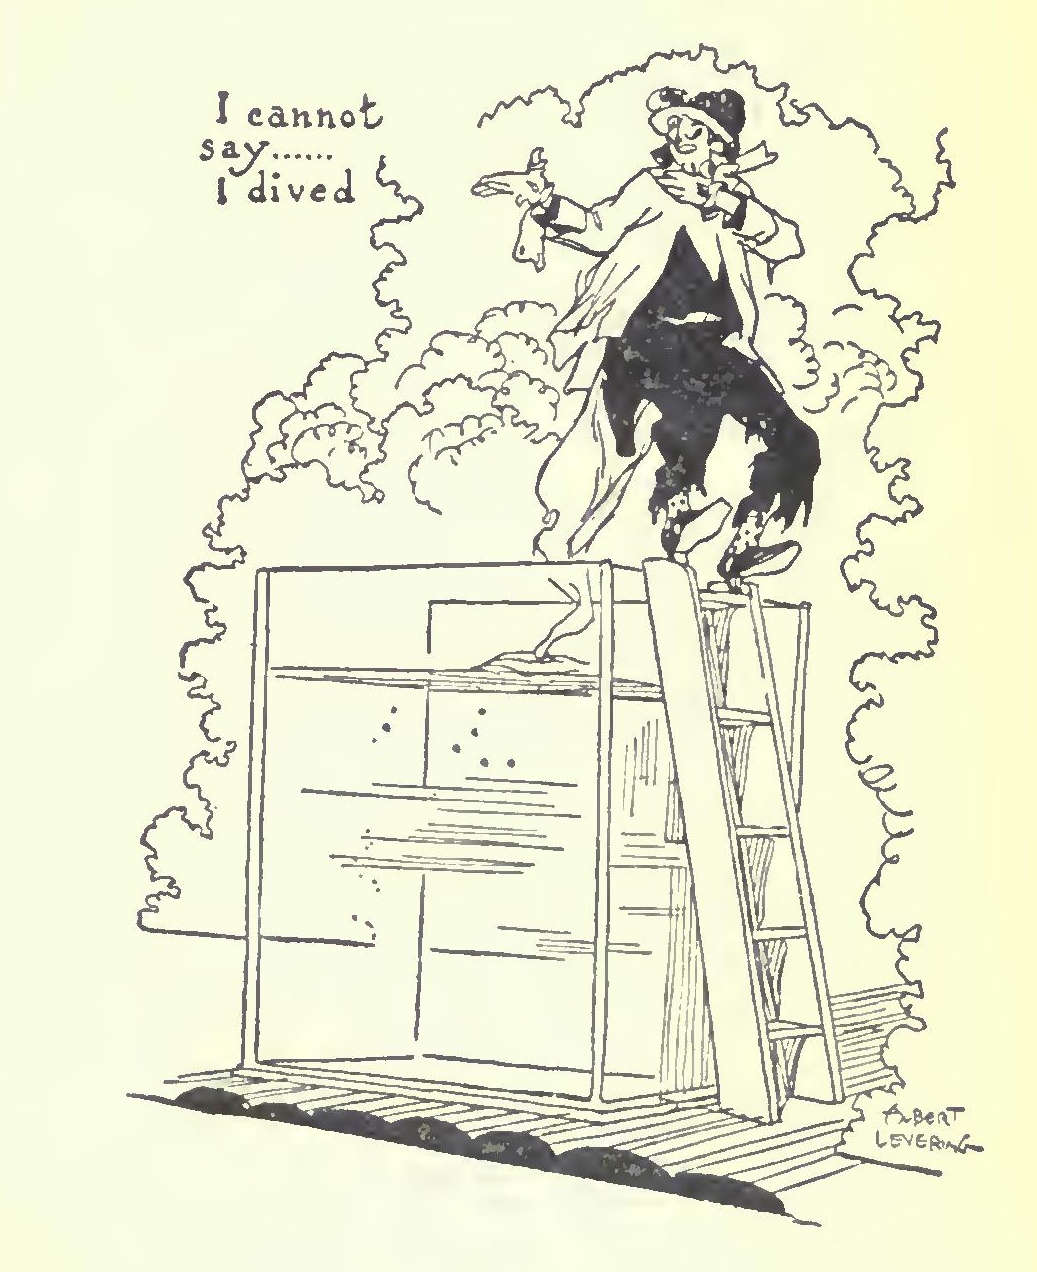 I cannot
say......
I dived
ALBERT
LEVERING